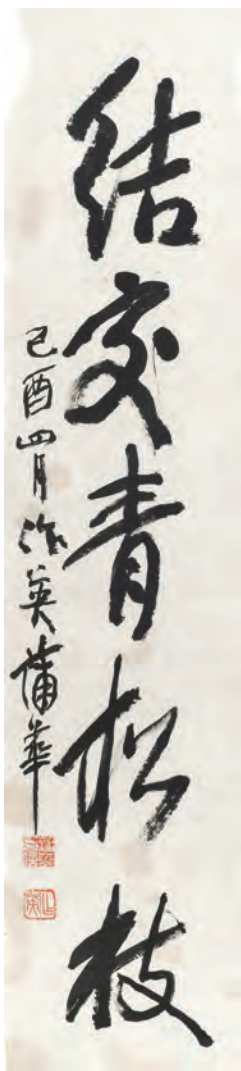 结交青松枝
己酉四月作英蒲華